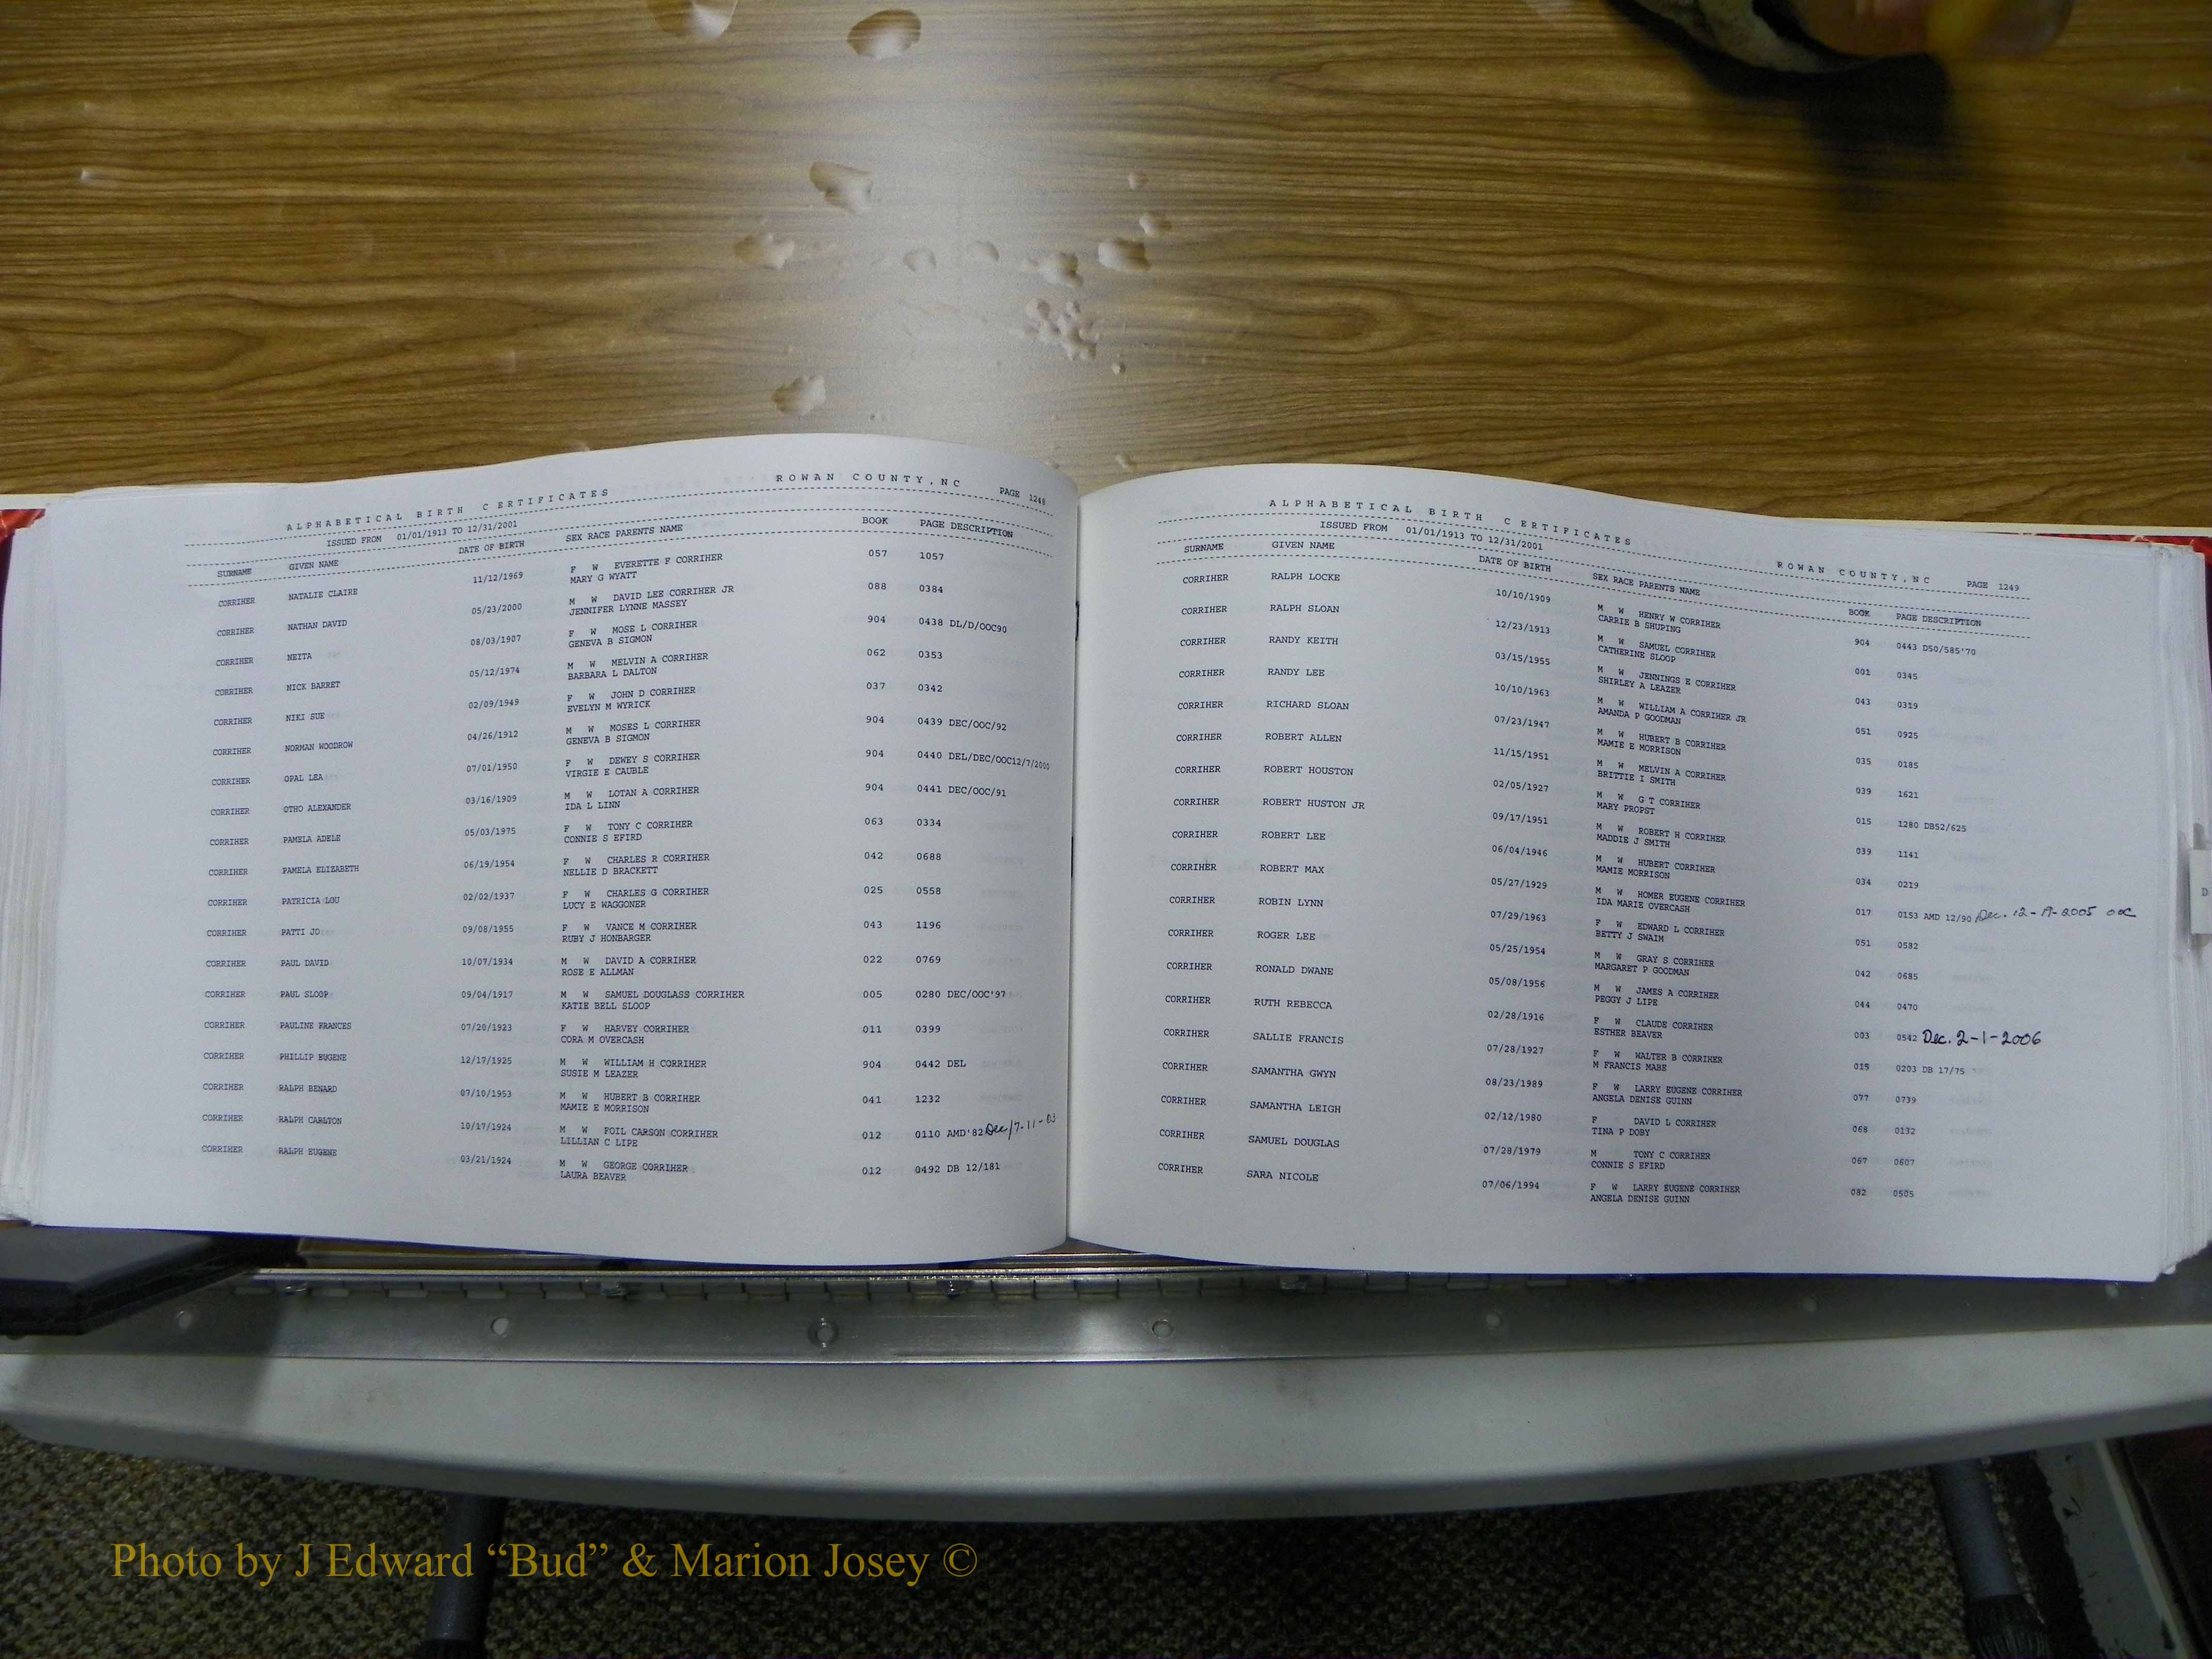 ALPHABETICAL BIRTH CERTIFICATES ROWAN COUNTY, NC PAGE 1248
ISSUED FROM 01/01/1913 TO 12/31/2001
SURNAME GIVEN NAME DATE OF BIRTH SEX RACE PARENTS NAME BOOK PAGE DESCRIPTION
CORRIHER NATALIE CLAIRE 11/12/1969 F W EVERETTE F CORRIHER 057 1057
MARY G WYATT
CORRIHER NATHAN DAVID 05/23/2000 M W DAVID LEE CORRIHER JR 088 0384
JENNIFER LYNNE MASSEY
CORRIHER NEITA 08/03/1907 F W MOSE L CORRIHER 904 0438 DL/D/OOC90
GENEVA B SIGMON
CORRIHER NICK BARRET 05/12/1974 M W MELVIN A CORRIHER 062 0353
BARBARA L DALTON
CORRIHER NIKI SUE 02/09/1949 F W JOHN D CORRIHER 037 0342
EVELYN M WYRICK
CORRIHER NORMAN WOODROW 04/26/1912 M W MOSES L CORRIHER 904 0439 DEC/OOC/92
GENEVA B SIGMON
CORRIHER OPAL LEA 07/01/1950 F W DEWEY S CORRIHER 904 0440 DEL/DEC/OOC12/7/2000
VIRGIE E CAUBLE
CORRIHER OTHO ALEXANDER 03/16/1909 M W LOTAN A CORRIHER 904 0441 DEC/OOC/91
IDA L LINN
CORRIHER PAMELA ADELE 05/03/1975 F W TONY C CORRIHER 063 0334
CONNIE S EFIRD
CORRIHER PAMELA ELIZABETH 06/19/1954 F W CHARLES R CORRIHER 042 0688
NELLIE D BRACKETT
CORRIHER PATRICIA LOU 02/02/1937 F W CHARLES G CORRIHER 025 0558
LUCY E WAGGONER
CORRIHER PATTI JO 09/08/1955 F W VANCE M CORRIHER 043 1196
RUBY J HONBARGER
CORRIHER PAUL DAVID 10/07/1934 M W DAVID A CORRIHER 022 0769
ROSE E ALLMAN
CORRIHER PAUL SLOOP 09/04/1917 M W SAMUEL DOUGLASS CORRIHER 005 0280 DEC/OOC'97
KATIE BELL SLOOP
CORRIHER PAULINE FRANCES 07/20/1923 F W HARVEY CORRIHER 011 0399
CORA M OVERCASH
CORRIHER PHILLIP EUGENE 12/17/1925 M W WILLIAM H CORRIHER 904 0442 DEL
SUSIE M LEAZER
CORRIHER RALPH BENARD 07/10/1953 M W HUBERT B CORRIHER 041 1232
MAMIE E MORRISON
CORRIHER RALPH CARLTON 10/17/1924 M W FOIL CARSON CORRIHER 012 0110 AMD'82 Dec/7-11-03
LILLIAN C LIPE
CORRIHER RALPH EUGENE 03/21/1924 M W GEORGE CORRIHER 012 0492 DB 12/181
LAURA BEAVER
ALPHABETICAL BIRTH CERTIFICATES ROWAN COUNTY, NC PAGE 1249
ISSUED FROM 01/01/1913 TO 12/31/2001
SURNAME GIVEN NAME DATE OF BIRTH SEX RACE PARENTS NAME BOOK PAGE DESCRIPTION
CORRIHER RALPH LOCKE 10/10/1909 M W HENRY W CORRIHER 904 0443 D50/585'70
CARRIE B SHUPING
CORRIHER RALPH SLOAN 12/23/1913 M W SAMUEL CORRIHER 001 0345
CATHERINE SLOOP
CORRIHER RANDY KEITH 03/15/1955 M W JENNINGS E CORRIHER 043 0319
SHIRLEY A LEAZER
CORRIHER RANDY LEE 10/10/1963 M W WILLIAM A CORRIHER JR 051 0925
AMANDA P GOODMAN
CORRIHER RICHARD SLOAN 07/23/1947 M W HUBERT B CORRIHER 035 0185
MAMIE E MORRISON
CORRIHER ROBERT ALLEN 11/15/1951 M W MELVIN A CORRIHER 039 1621
BRITTIE I SMITH
CORRIHER ROBERT HOUSTON 02/05/1927 M W G T CORRIHER 015 1280 DB52/625
MARY PROPST
CORRIHER ROBERT HUSTON JR 09/17/1951 M W ROBERT H CORRIHER 039 1141
MADDIE J SMITH
CORRIHER ROBERT LEE 06/04/1946 M W HUBERT CORRIHER 034 0219
MAMIE MORRISON
CORRIHER ROBERT MAX 05/27/1929 M W HOMER EUGENE CORRIHER 017 0153 AMD 12/90 Dec. 12-19-2005 OOC
IDA MARIE OVERCASH
CORRIHER ROBIN LYNN 07/29/1963 F W EDWARD L CORRIHER 051 0582
BETTY J SWAIM
CORRIHER ROGER LEE 05/25/1954 M W GRAY S CORRIHER 042 0685
MARGARET P GOODMAN
CORRIHER RONALD DWANE 05/08/1956 M W JAMES A CORRIHER 044 0470
PEGGY J LIPE
CORRIHER RUTH REBECCA 02/28/1916 F W CLAUDE CORRIHER 003 0542 Dec. 2-1-2006
ESTHER BEAVER
CORRIHER SALLIE FRANCIS 07/28/1927 F W WALTER B CORRIHER 015 0203 DB 17/75
M FRANCIS MABE
CORRIHER SAMANTHA GWYN 08/23/1989 F W LARRY EUGENE CORRIHER 077 0739
ANGELA DENISE GUINN
CORRIHER SAMANTHA LEIGH 02/12/1980 F DAVID L CORRIHER 068 0132
TINA P DOBY
CORRIHER SAMUEL DOUGLAS 07/28/1979 M TONY C CORRIHER 067 0607
CONNIE S EFIRD
CORRIHER SARA NICOLE 07/06/1994 F W LARRY EUGENE CORRIHER 082 0505
ANGELA DENISE GUINN
D
Photo by J Edward “Bud” & Marion Josey ©